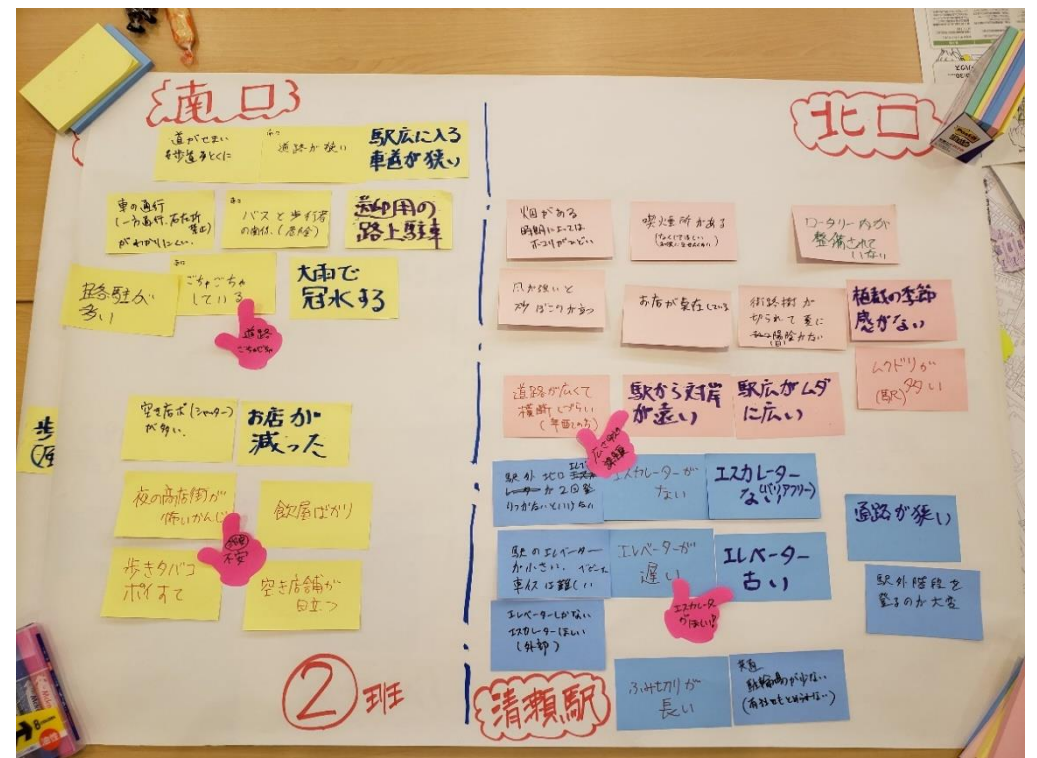 南口
道がせまい
歩道るとくに
道路が狭い
駅広に入る
車道が狭い
車の通行
(一方通行、右左折
禁止)
がわかりにくい。
バスと歩行者
送迎用の
路上駐車
路駐が
多い
ごちゃごちゃ
している
大雨で
冠水する
道路
ごちゃごちゃ
空き店ポ(シャッター)
が多い。
お店が
減った
夜の商店街が
怖いかんじ
飲屋ばかり
不安
歩きタバコ
ポイすて
空き店舗が
目立つ
歩
②班
北口
畑がある
時期によっては
ホコリがひどい
喫煙所がある
ロータリー内が
整備されて
いない
風が強いと
砂ぼこりが立つ
お店が点在している
街路樹が
切られて夏に
日陰がない
植栽の季節
感がない
ムクドリが
(駅)多い
道路が広くて
横断しづらい
駅から対岸
が遠い
駅広がムダ
に広い
駅外北口
が2回登
りつがないといけない
エスカレーターが
ない
エスカレーター
ない(バリアフリー)
通路が狭い
駅のエレベーター
が小さい、
車イスは難しい
エレベーターが
遅い
エレベーター
古い
駅外階段を
登るのが大変
エレベーターしかない
エスカレーターほしい
(外部)
エスカレータ
がほしい!!
ふみ切りが
長い
駐輪場が少ない
清瀬駅